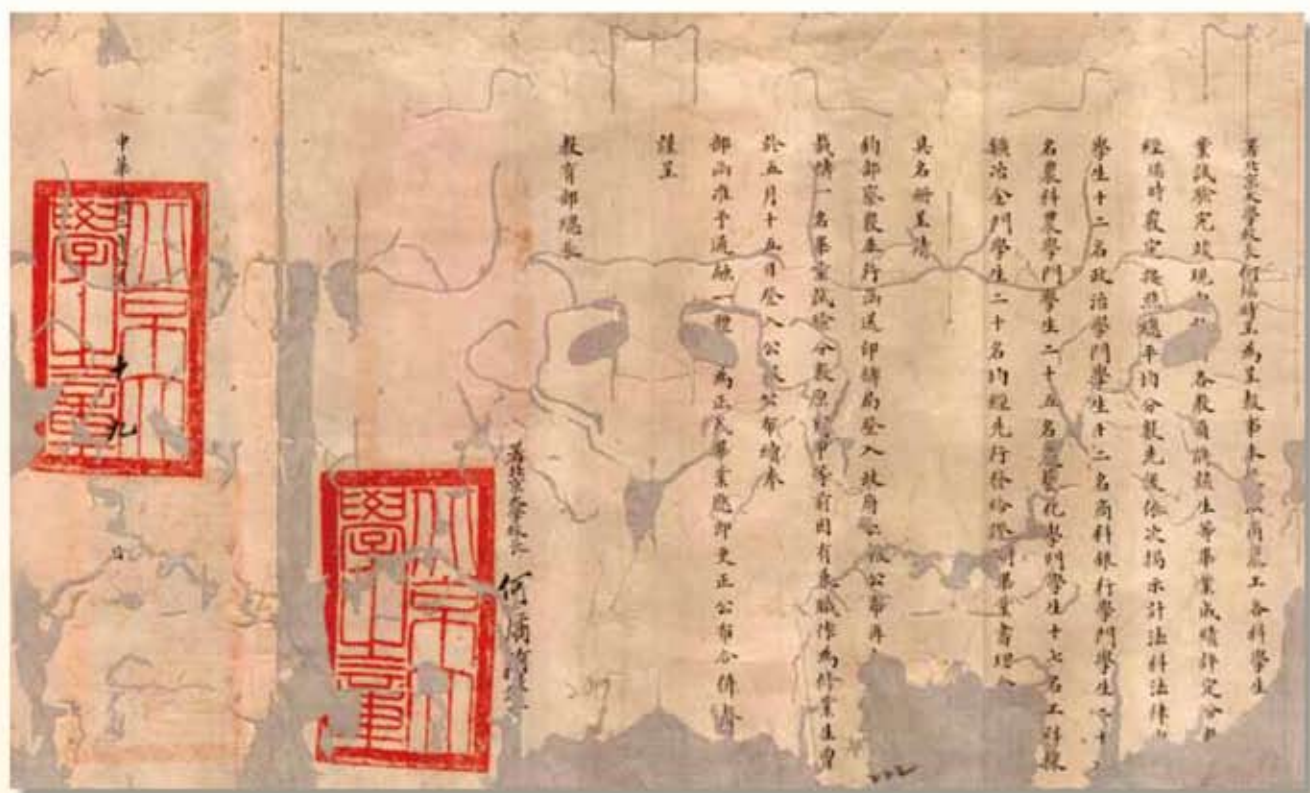 署北京大學校長何燏時呈為呈報事本 商農工各科學生
業試驗完竣現 各教員將該生等畢業成績評定分
經燏時覆定按照總平均分數先後依次揭示計法科法律
學生十二名政治學門學生十二名商科銀行學門學生二十
名農科農學門學生二十五名農藝化學門學生十七名工科採
鑛冶金門學生二十名均經先行發給證明畢業書理合
具名冊呈請
鈞部察覈並行函送印鑄局登入政府公報公布再
裁縝一名畢業試驗分數原 甲等前因有兼職作為修業生曾
於五月十五日登入公報公布續奉
部函准予通融一體 為正式畢業應即更正公布合併
謹呈
教育部總長
署北京大學校長 何燏時
中華
十九
日
北京大學之章
北京大學之章
222